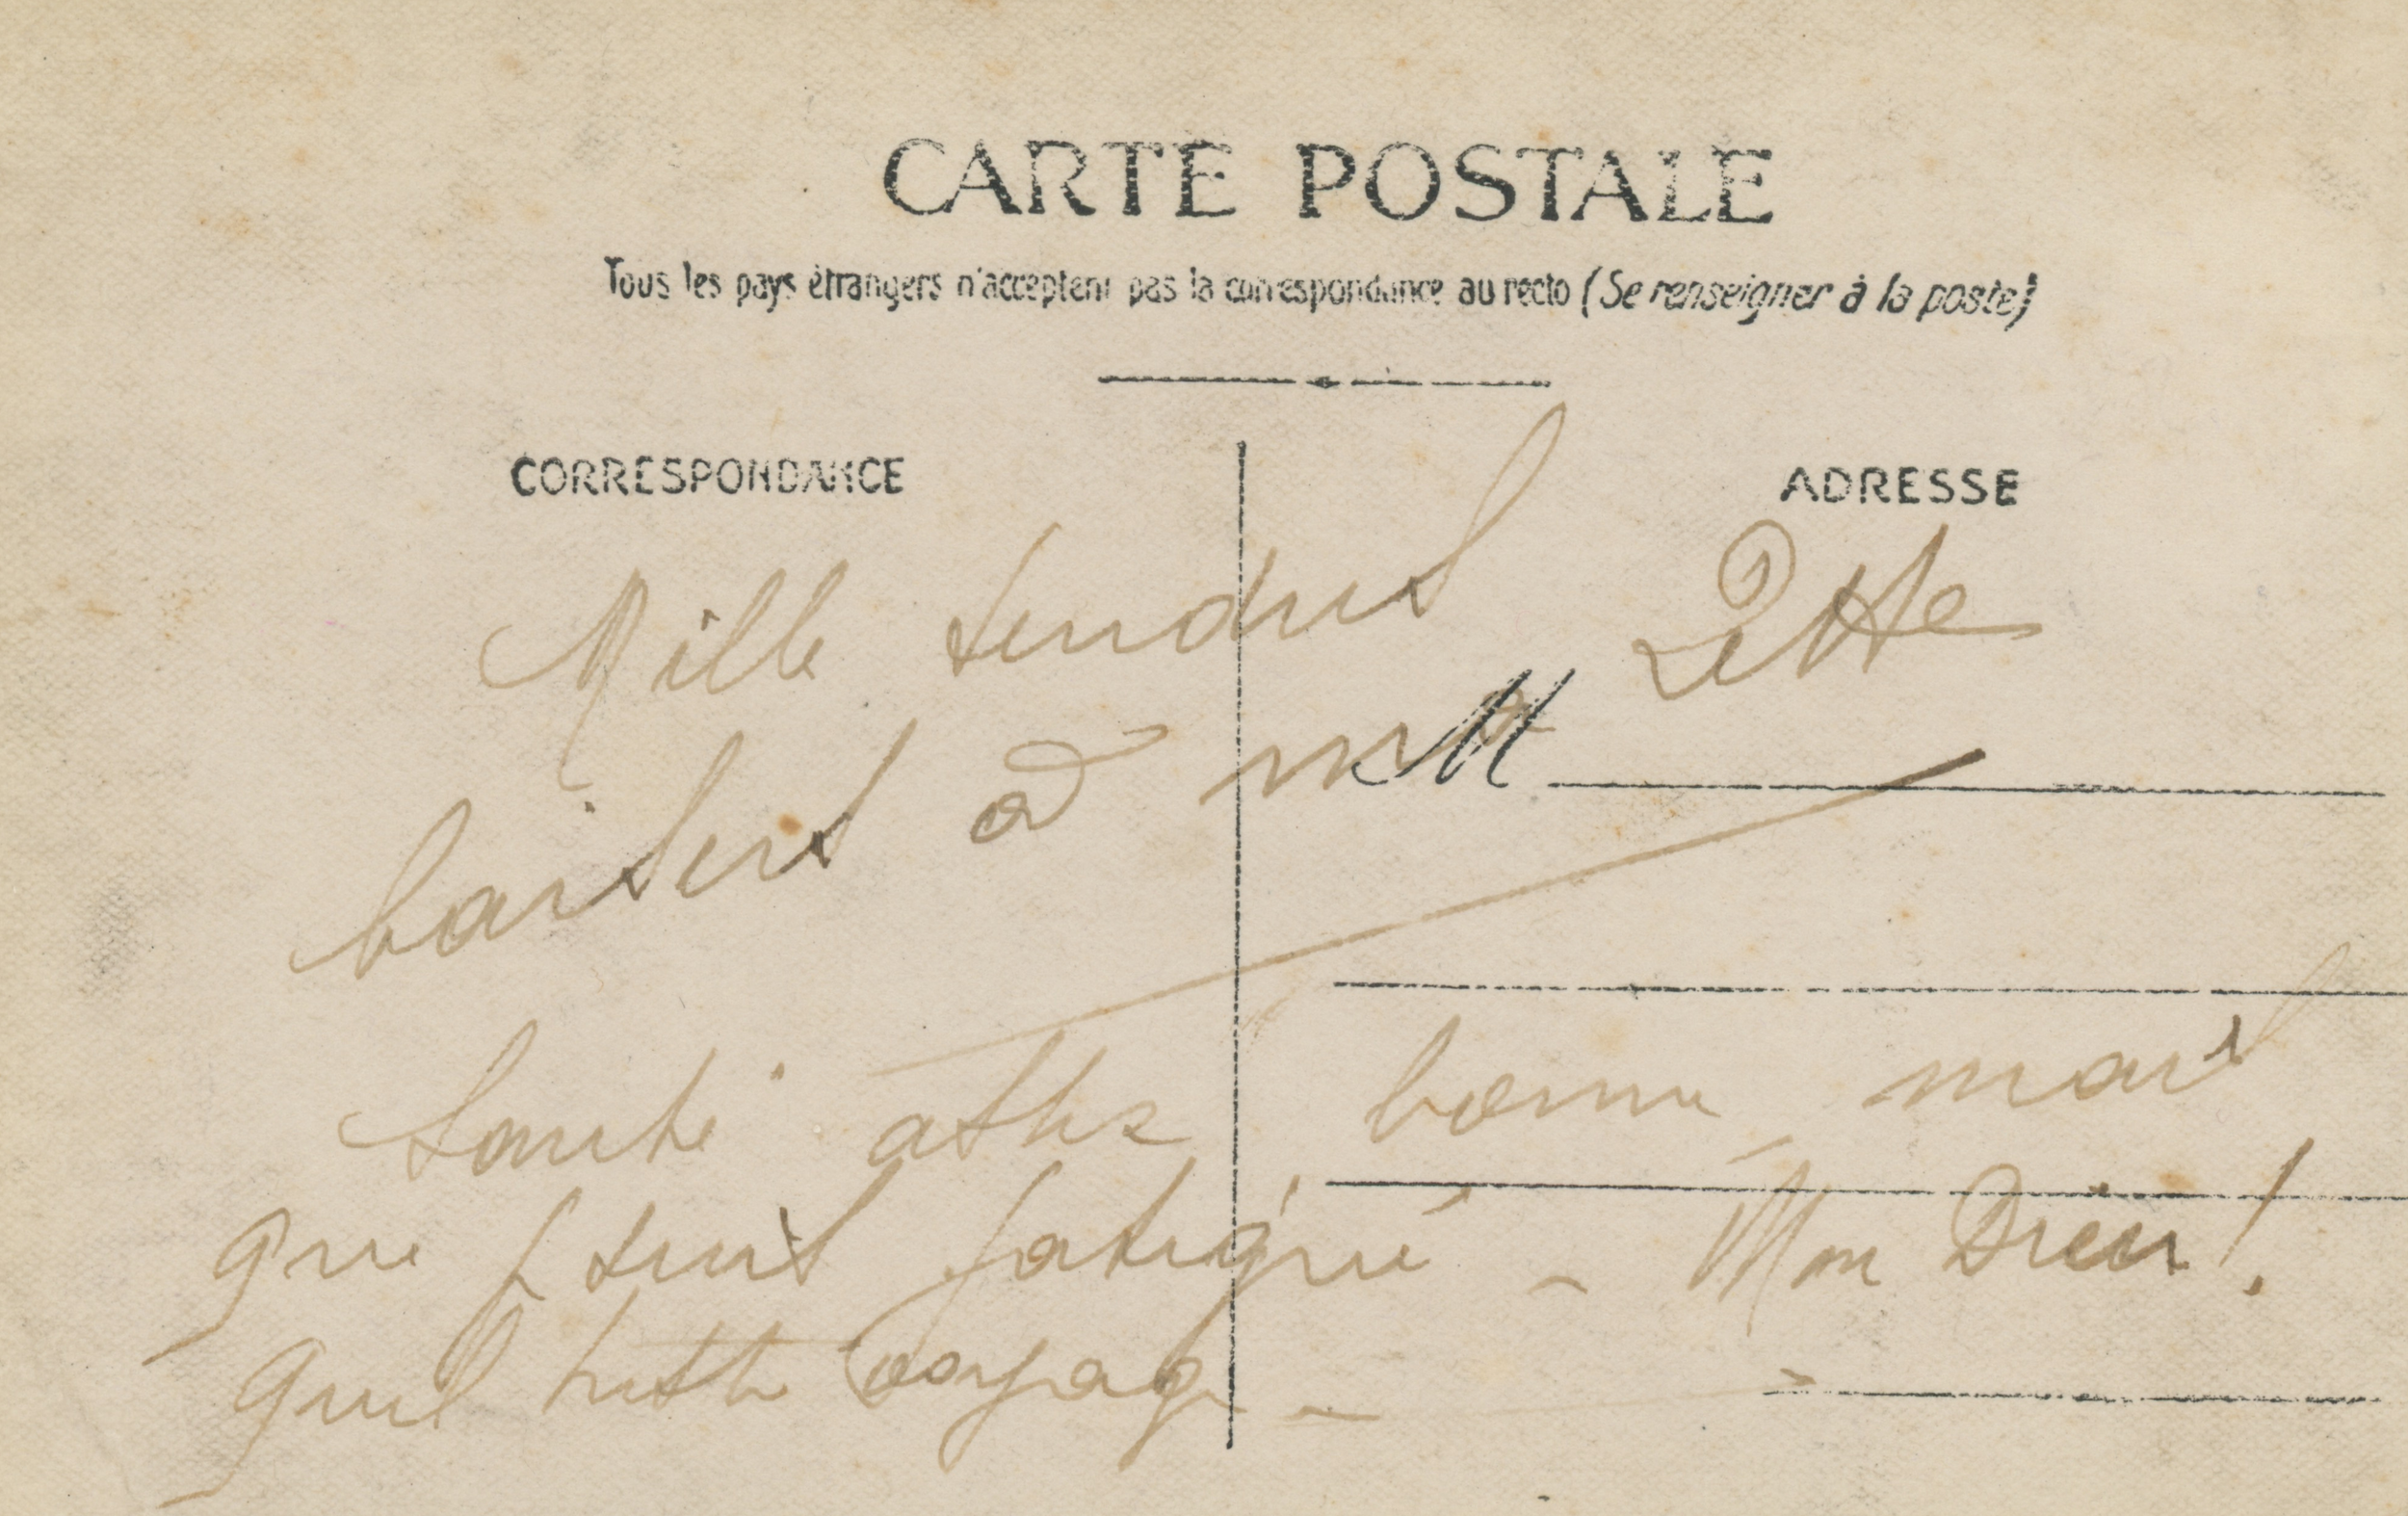 CARTE POSTALE
Tous les pays étrangers n'acceptent pas la correspondance au recto (Se renseigner à la poste)
CORRESPONDANCE
ADRESSE
Mille tendres
baisers à ma Lette
M
Santé assez bonne mais
que je suis fatigué - Mon Dieu!
quel triste voyage -